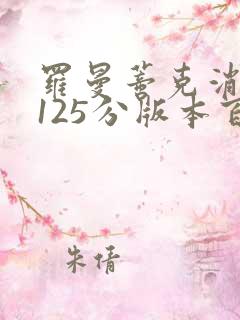 羅曼蒂克消
125分版本百
朱倩